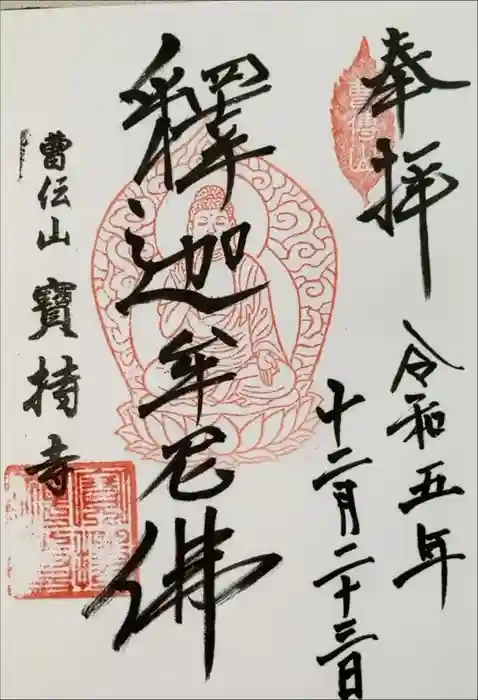 奉拝
令和五年
十二月二十三日
釋迦牟尼佛
曹伝山 寶持寺